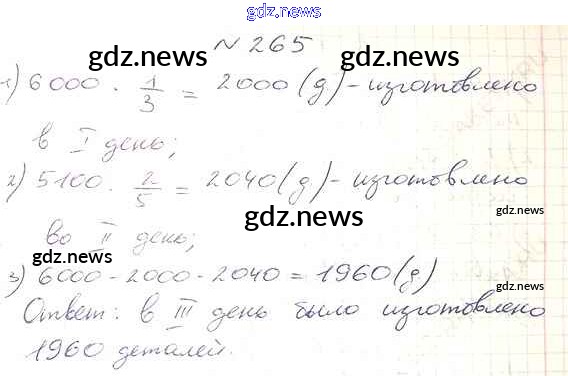 gdz.news
№ 265
gdz.news gdz.news
1) 6000 · 1/3 = 2000 (д) - изготовлено
в I день;
2) 5100 · 2/5 = 2040 (д) - изготовлено
gdz.news
во II день;
gdz.news
gdz.news
3) 6000 - 2000 - 2040 = 1960 (д)
gdz.news
Ответ: в III день было изготовлено
1960 деталей.
gdz.news